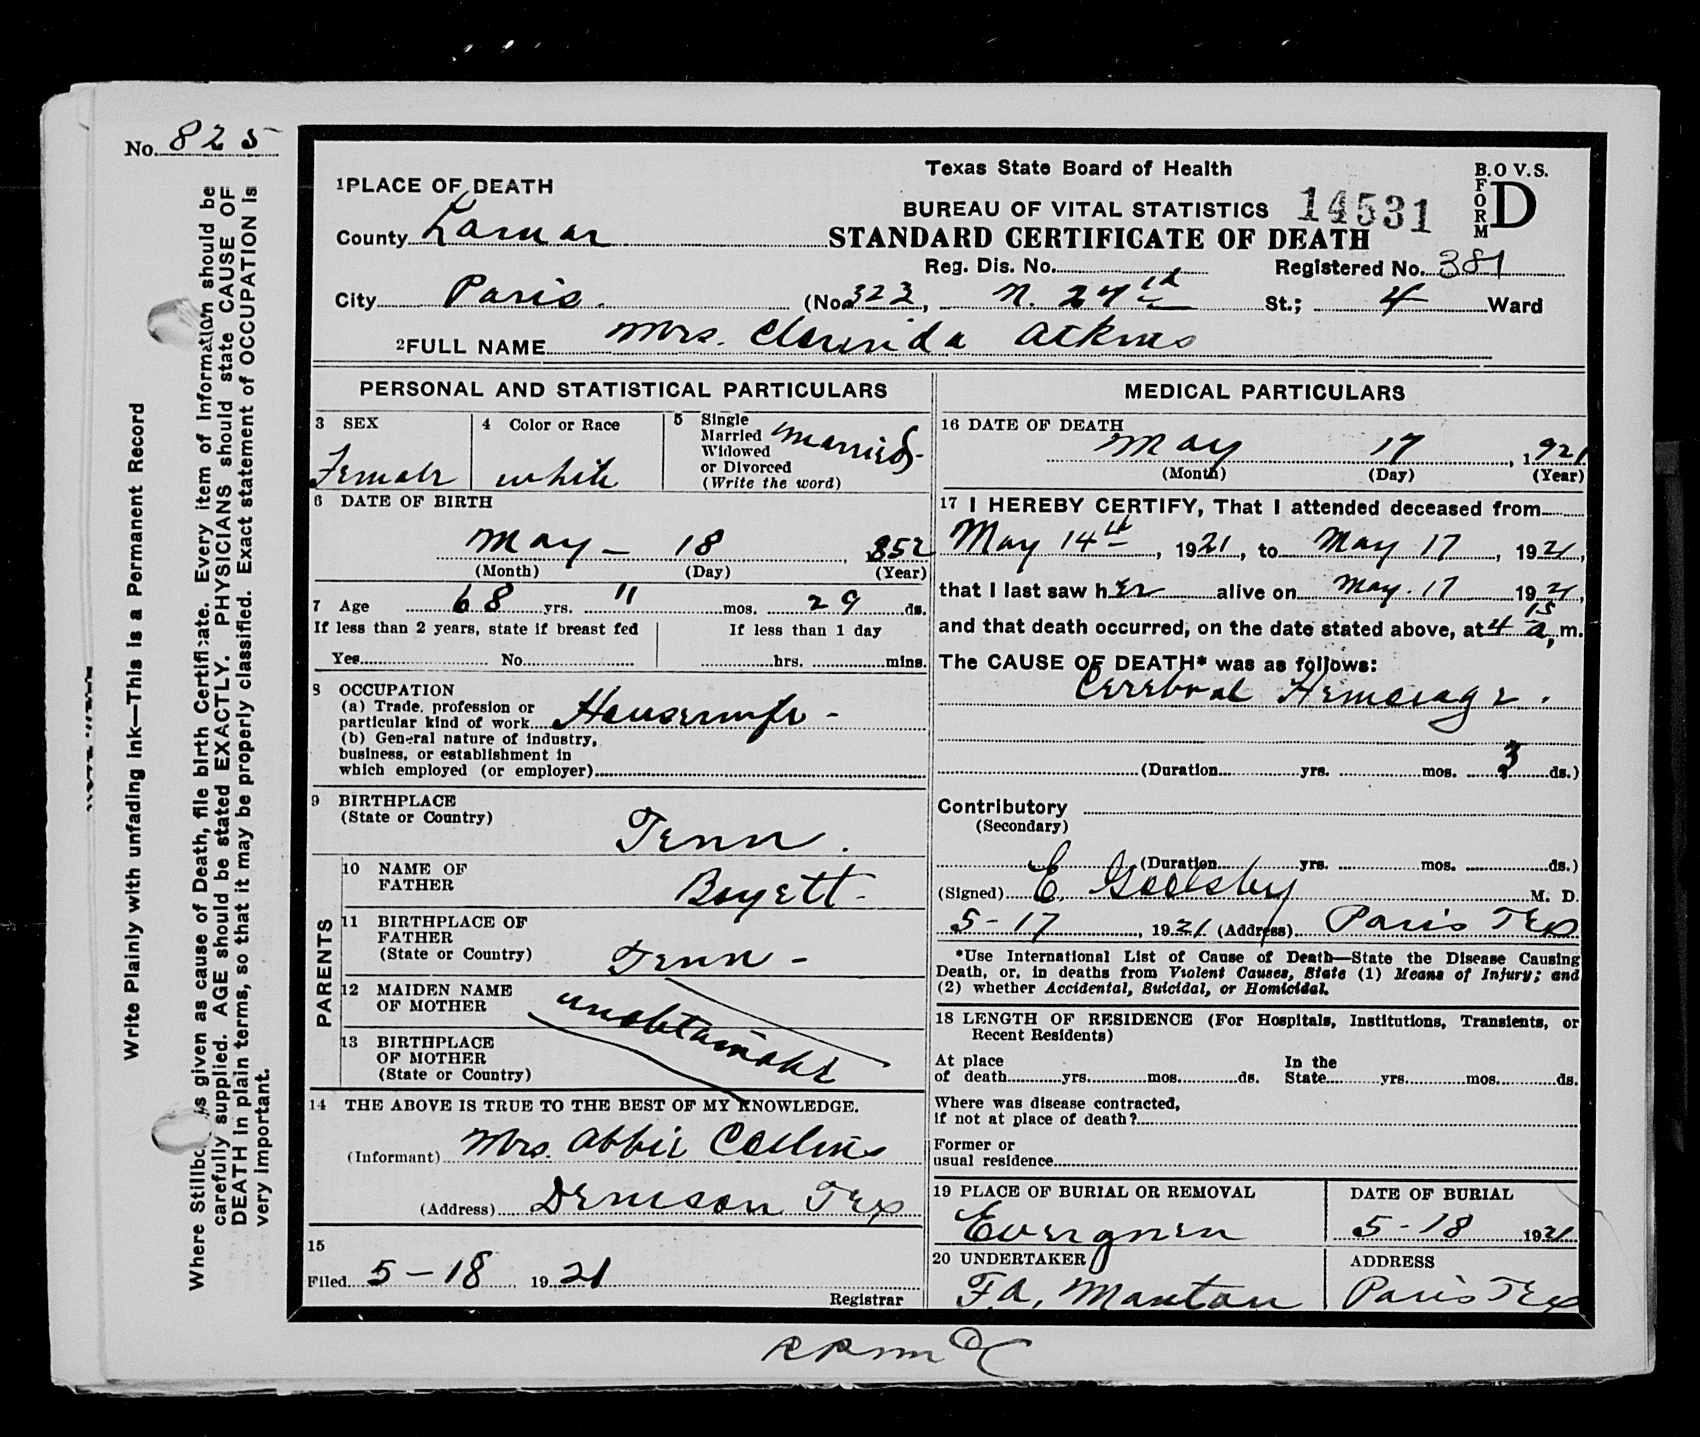 No. 825
Write Plainly with unfading ink—This is a Permanent Record
Where Stillbo is given as cause of Death, file birth Certificate. Every item of Information should be
carefully supplied. AGE should be stated EXACTLY. PHYSICIANS should state CAUSE OF
DEATH in plain terms, so that it may be properly classified. Exact statement of OCCUPATION is
very important.
Texas State Board of Health
BUREAU OF VITAL STATISTICS 14531
B.O V.S.
FORM D
STANDARD CERTIFICATE OF DEATH
1PLACE OF DEATH
County Lamar
Reg. Dis. No. Registered No. 381
City Paris. (No. 323, N. 27th St.; 4 Ward
2FULL NAME Mrs. Clurinda Atkins
PERSONAL AND STATISTICAL PARTICULARS
3 SEX
Female
4 Color or Race
white
5 Single
Married
Widowed
or Divorced
(Write the word)
Married-
6 DATE OF BIRTH
May - 18, 852
(Month) (Day) (Year)
7 Age 68 yrs. 11 mos. 29 ds.
If less than 2 years, state if breast fed
Yes No
If less than 1 day
hrs. mins.
8 OCCUPATION
(a) Trade, profession or
particular kind of work Housewife -
(b) General nature of industry,
business, or establishment in
which employed (or employer)
9 BIRTHPLACE
(State or Country) Tenn.
PARENTS
10 NAME OF
FATHER Boyett-
11 BIRTHPLACE OF
FATHER
(State or Country) Tenn-
12 MAIDEN NAME
OF MOTHER
unobtainable
13 BIRTHPLACE
OF MOTHER
(State or Country)
14 THE ABOVE IS TRUE TO THE BEST OF MY KNOWLEDGE.
(Informant) Mrs. Abbie Collins
(Address) Denison Tex
15
Filed 5-18 1921
Registrar
MEDICAL PARTICULARS
16 DATE OF DEATH
May 17, 1921
(Month) (Day) (Year)
17 I HEREBY CERTIFY, That I attended deceased from
May 14th, 1921, to May 17, 1921,
that I last saw her alive on May. 17 1921,
and that death occurred, on the date stated above, at 4 15 a, m.
The CAUSE OF DEATH* was as follows:
Cerebral Hemorage.
(Duration yrs. mos. 3 ds.)
Contributory
(Secondary)
(Duration yrs. mos. ds.)
(Signed) E. Goolsby M. D.
5-17, 1921 (Address) Paris Tex
*Use International List of Cause of Death—State the Disease Causing
Death, or, in deaths from Violent Causes, State (1) Means of Injury; and
(2) whether Accidental, Suicidal, or Homicidal.
18 LENGTH OF RESIDENCE (For Hospitals, Institutions, Transients, or
Recent Residents)
At place
of death yrs. mos. ds.
In the
State yrs. mos. ds.
Where was disease contracted,
if not at place of death?
Former or
usual residence
19 PLACE OF BURIAL OR REMOVAL
Evergreen
DATE OF BURIAL
5-18 1921
20 UNDERTAKER
F.A. Manton
ADDRESS
Paris Tex